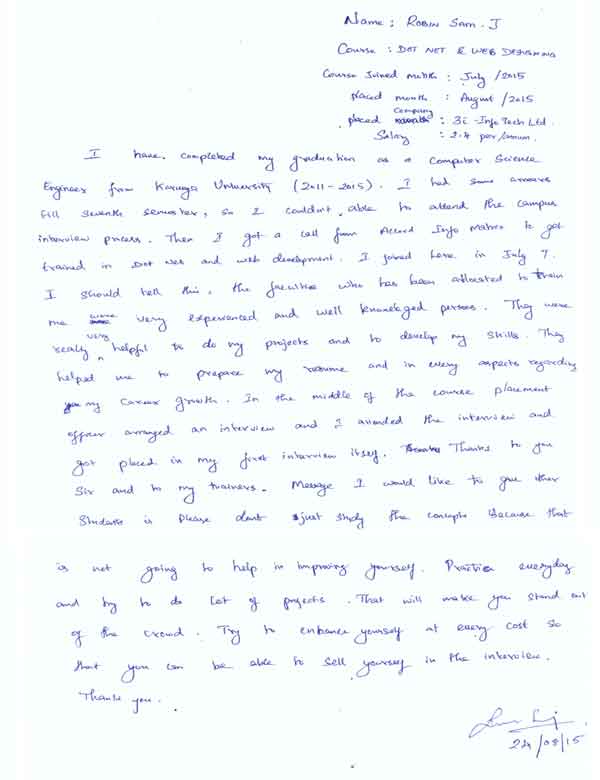 Name : ROBIN SAM. J
Course : DOT NET & WEB DESIGNING
Course Joined month : July /2015
placed month : August /2015
placed company : 3i -Info Tech Ltd.
Salary : 2.4 per/annum.
I have completed my graduation as a Computer Science
Engineer from Karunya University (2011-2015). I had some arrears
till seventh semester, so I couldn't able to attend the campus
interview process. Then I got a call from Accord Info Matrix to get
trained in Dot Net and web development. I joined here in July 7.
I should tell this, the faculties who has been allocated to train
me were very experienced and well knowledged persons. They were
really very helpful to do my projects and to develop my skills. They
helped me to prepare my resume and in every aspects regarding
my career growth. In the middle of the course placement
officer arranged an interview and I attended the interview and
got placed in my first interview itself. Thanks to you
Sir and to my trainers. Message I would like to give other
Students is Please dont just study the concepts Because that
is not going to help in improving yourself. Practice everyday
and try to do lot of projects. That will make you stand out
of the crowd. Try to enhance yourself at every cost so
that you can be able to sell yourself in the interview.
Thank you.
24/08/15